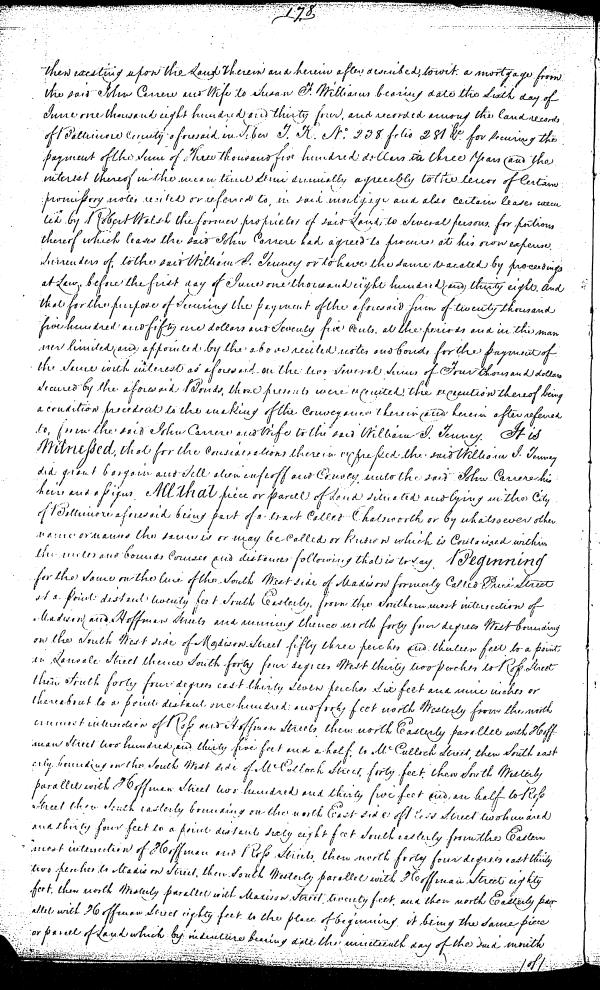 178
then existing upon the Land therein and herein after described, to wit, a mortgage from
the said John Carrere and Wife to Susan F. Williams bearing date the Sixth day of
June one thousand eight hundred and thirty four, and recorded among the land records
of Baltimore County aforesaid in Liber T. K. No. 238 folio 281 &c for securing the
payment of the Sum of Three thousand five hundred dollars in three Years and the
interest thereof in the mean time Semi annually agreeably to the tenor of Certain
promissory notes recited or referred to, in said mortgage and also certain leases execu
ted by Robert Walsh the former proprietor of said Land, to Several persons, for portions
thereof which leases the said John Carrere had agreed to procure at his own expense
Surrenders of, to the said William I. Tenney or to have the same vacated by proceedings
at Law, before the first day of June one thousand eight hundred and thirty eight, And
that for the purpose of Securing the payment of the aforesaid sum of twenty thousand
five hundred and fifty one dollars and Seventy five Cents, at the periods and in the man
ner limited and appointed by the above recited notes and bonds for the payment of
the Same with interest as aforesaid on the two Several Sums of Four thousand dollars
secured by the aforesaid Bonds, those presents were executed the execution thereof being
a condition precedent to the making of the Conveyance therein and herein after referred
to, from the said John Carrere and Wife to the said William I. Tenney. It is
Witnessed, that for the considerations therein expressed the said William I. Tenney
did grant bargain and Sell alien enfeoff and Convey unto the said John Carrere his
heirs and assigns, All that piece or parcell of Land situated and lying in the City
of Baltimore aforesaid being part of a tract Called Chatsworth or by whatsoever other
name or names the same is or may be called or known which is Contained within
the metes and bounds Courses and distances following that is to say. Beginning
for the Same on the line of the South West side of Madison formerly Called Street
at a point distant twenty feet South Easterly, from the Southernmost intersection of
Madison and Hoffman Streets and running thence north forty four degrees West bounding
on the South West side of Madison Street fifty three perches and thirteen feet to a point
in Lansale Street thence South forty four degrees West thirty two perches to Ross Street
then South forty four degrees east thirty Seven perches Six feet and nine inches or
thereabout to a point distant one hundred and forty feet north Westerly from the north
ernmost intersection of Ross and Hoffman Streets, then north Easterly parallel with Hoff
man Street two hundred and thirty five feet and a half, to McCulloch Street, then South east
erly bounding on the South West side of McCulloch Street, forty feet, then South Westerly
parallel with Hoffman Street two hundred and thirty five feet and an half to Ross
Street then South easterly bounding on the north East side of Ross Street two hundred
and thirty four feet to a point distant sixty eight feet South easterly from the Eastern
most intersection of Hoffman and Ross Streets, then north forty four degrees east thirty
two perches to Madison Street, then South Westerly parallel with Hoffman Street eighty
feet, then north Westerly parallel with Madison Street, twenty feet, and then north Easterly par
allel with Hoffman Street eighty feet to the place of beginning, it being the Same piece
or parcel of Land which by indenture bearing date the nineteenth day of the 2nd month
of